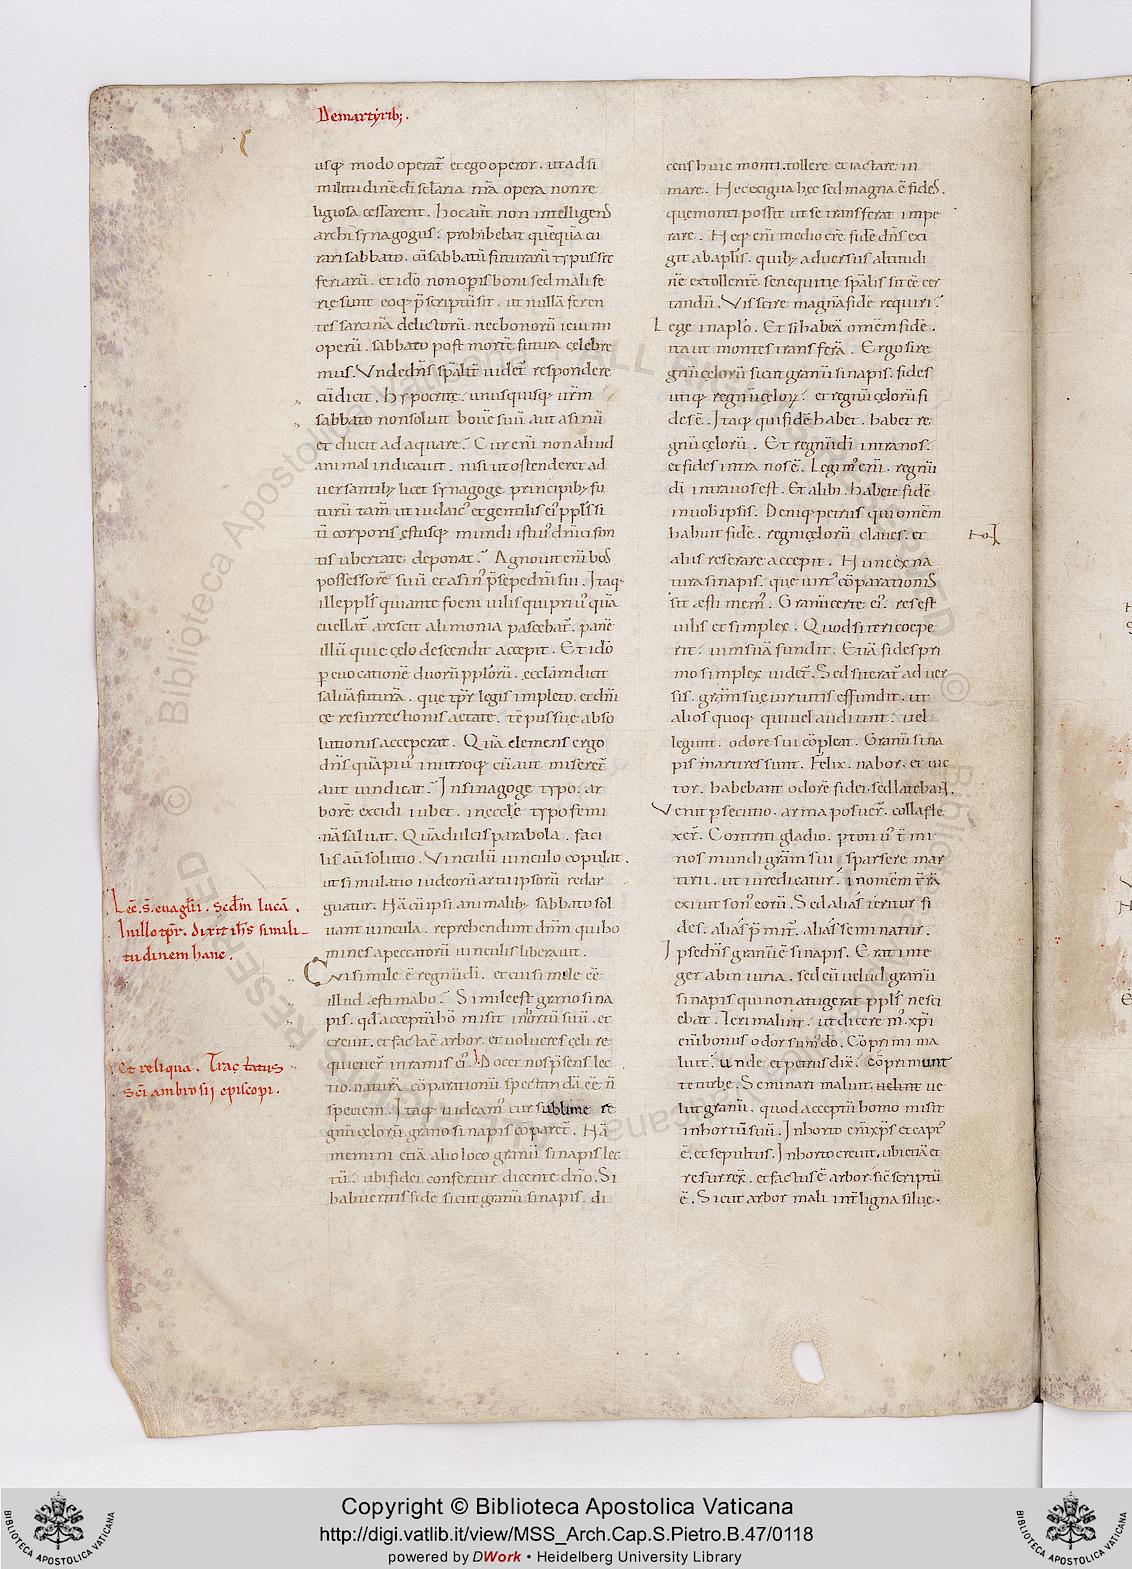 De martyrib;.
usq; modo operat̄ et ego operor. ut ad si
militudinē dī sclaria nr̄a opera non re
ligiosa cessarent. hoc aut̄ non intelligens
archisynagogus. prohibebat quēquā cu
rari sabbato. cū sabbatū futurarū typus sit
feriarū. et idō non opis boni sed mali fe
riȩ sunt eoq; p̄scriptū sit. ut nullā feren
tes sarcinā delictorū. nec bonorū ieiuni
operū. sabbato post mortē futura cȩlebre
mus. Unde dn̄s spālit̄ videt̄ respondere
cū dicit. hypocritȩ. unusquisq; ur̄m
sabbato non solvit bovē suū aut asinū
et ducit adaquare. Cur enī non aliud
animal indicavit. nisi ut ostenderet ad
versantib; licet synagogȩ principib; fu
turū tam̄ ut iudaic' et gentilis ei' ppls̄ si
ti corporis ȩstusq; mundi istiu' dn̄ici fon
tis ubertate deponat. Agnovit enī bos
possessorē suū et asin' p̄sepe dn̄i sui. Itaq;
ille ppls̄ qui ante foeni vilis qui priu' quā
evellat̄ arescit alimonia pascebat̄. panē
illū qui e cȩlo descendit accepit. Et idō
p evocationē duorū pplorū. ecclām dicit
salvā futurā. quȩ tpr̄ legis impleto. et dn̄i
cȩ resurrectionis aetate. tēpus suȩ abso
lutionis acceperat. Quā clemens ergo
dn̄s quā piu' in utroq; cū aut miseret̄
aut vindicat. In sinagogȩ typo. ar
borē excidi iubet. in ecclȩ typo femi
nā salvat. Quā dulcis parabola. faci
lis aut̄ solutio. Vinculū vinculo copulat.
ut simulatio iudeorū artu ipsorū redar
guatur. Nā cū ipsi animalib; sabbato sol
vant vincula. reprehendunt dn̄m qui ho
mines a peccatorū vinculis liberavit.
Lec. s. evaglii. scdm̄ lucā.
In illo tpr̄. dixit ih̄s simili-
tudinem hanc.
Cui simile ē regnū dī. et cui simile eē
illud ȩstimabo. Simile est grano sina
pis. qd̄ acceptū hō misit in ortū suū. et
crevit. et factā ē arbor. et volucres cȩli re
quiever̄ in ramis ei'. Docet nos p̄sens lec
et reliqua. Tractatus
scī ambrosij episcopi.
tio. naturā cōparationū spectandā eē n̄
speciem. Itaq; videam' cur sublime re
gnū cȩlorū grano sinapis cōparet̄. Nā
memini etiā alio loco granū sinapis lec
tū. ubi fidei confertur dicente dn̄o. Si
habueritis fidē sicut granū sinapis. di
cetis huic monti. tollere et iactare in
mare. Hec exigua hȩc sed magna ē fides.
quȩ monti possit ut se transferat impe
rare. Neq; enī mediocrē fidē dn̄s exi
git ab aplis. quib; adversus altitudi
nē extollentē se nequitiȩ spālis sit ēe cer
tandū. Vis scire magnā fidē requiri.
Lege in aplō. Et si habeā omēm fidē.
ita ut montes transferā. Ergo si re
gnū cȩlorū sicut granū sinapis. fides
utiq; regnū cȩlor;. et regnū cȩlorū fi
des ē. Itaq; qui fidē habet. habet re
gnū cȩlorū. Et regnū dī intra nos.
et fides intra nos ē. Legim' enī. regnū
dī intra vos est. Et alibi. habete fidē
in vob ipsis. Deniq; petrus qui omēm
habuit fidē. regni cȩlorū claves. et
aliis reserare accepit. Nunc ex na
tura sinapis. quȩ virt' cōparationis
sit ȩstimem'. Granū certe ei'. res est
vilis et simplex. Quod si teri coepe
rit. vim suā fundit. Et iā fides pri
mo simplex videt̄. Sed si terat̄ adver
sis. grām suȩ virtutis effundit. ut
alios quoq; qui vel audiunt. vel
legunt. odore sui cōpleat. Granū sina
pis martires sunt. Felix. nabor. et vic
tor. habebant odorē fidei. sed latebāt.
Venit psecutio. arma posuer̄. colla fle
xer̄. Contriti gladio. p totiu' t̄mi
nos mundi grām sui sparsere mar
tirii. ut iure dicatur. in omēm t̄rā
exivit son' eorū. Sed alias teritur fi
des. alias p̄mit̄. alias seminatur.
Ipse dn̄s granū ē sinapis. Erat inte
ger ab iniuria. sed eū velud granū
sinapis qui non atigerat ppls̄ nesci
ebat. Teri maluit. ut dicerem'. xp̄i
enī bonus odor sum' dō. Cōprimi ma
luit. unde et petrus dix̄. Cōprimunt
te turbȩ. Seminari maluit. velint ve
lut granū. quod acceptū homo misit
in hortū suū. In horto enī xp̄s et capt'
ē. et sepultus. In horto crevit. ubi etiā et
resurrex̄. et factus ē arbor. sic̄ scriptū
ē. Sicut arbor mali int̄ ligna silvȩ.
Copyright © Biblioteca Apostolica Vaticana
http://digi.vatlib.it/view/MSS_Arch.Cap.S.Pietro.B.47/0118
powered by DWork • Heidelberg University Library